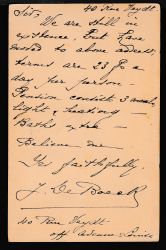 40 Rue Feydt
Sir,
We are still in
existence, but have
moved to above address.
Terms are 23 f a
day per person —
Pension consists 3 meals,
light, & heating —
Baths extra —
Believe me
Yrs faithfully,
J. De Boeck
40 Rue Feydt
off Avenue Louise